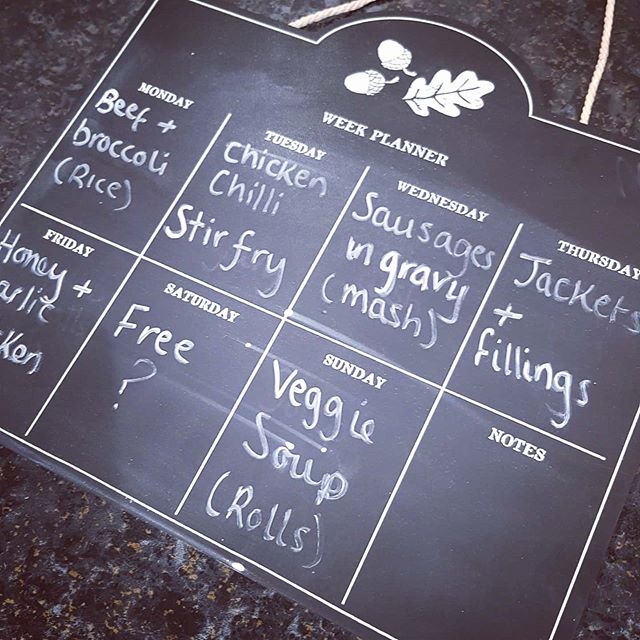 WEEK PLANNER
MONDAY
Beef +
broccoli
(Rice)
TUESDAY
Chicken
Chilli
Stir fry
WEDNESDAY
Sausages
in gravy
(mash)
THURSDAY
Jackets
+
fillings
FRIDAY
Honey +
arlic
ken
SATURDAY
Free
?
SUNDAY
Veggie
Soup
(Rolls)
NOTES